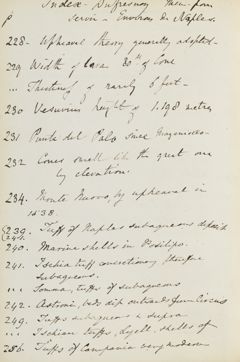 Index - Dufrenoy
p Environs de Naples.
228 - Upheaval theory generally adopted -
229 Width of lava 80th of Cone
" Thickness rarly 6 feet -
230 Vesuvius height of 1.198 metres
231 Punta del Palo
232 Cones small like the great one
by elevation.
234. Monte Nuovo, by upheaval in
1538.
239. Tuff of Naples subaqueous deposit
240. Marine shells in Posilipo.
241. Ischia tuff concretionary therefore
subaqueous.
" Somma, tuffs of subaqueous
242. Astroni, beds dip outwards from Circus
249. Tuffs subaqueous
" Ischian tuffs, Lyell, shells of
286. Tuffs of Campania very modern